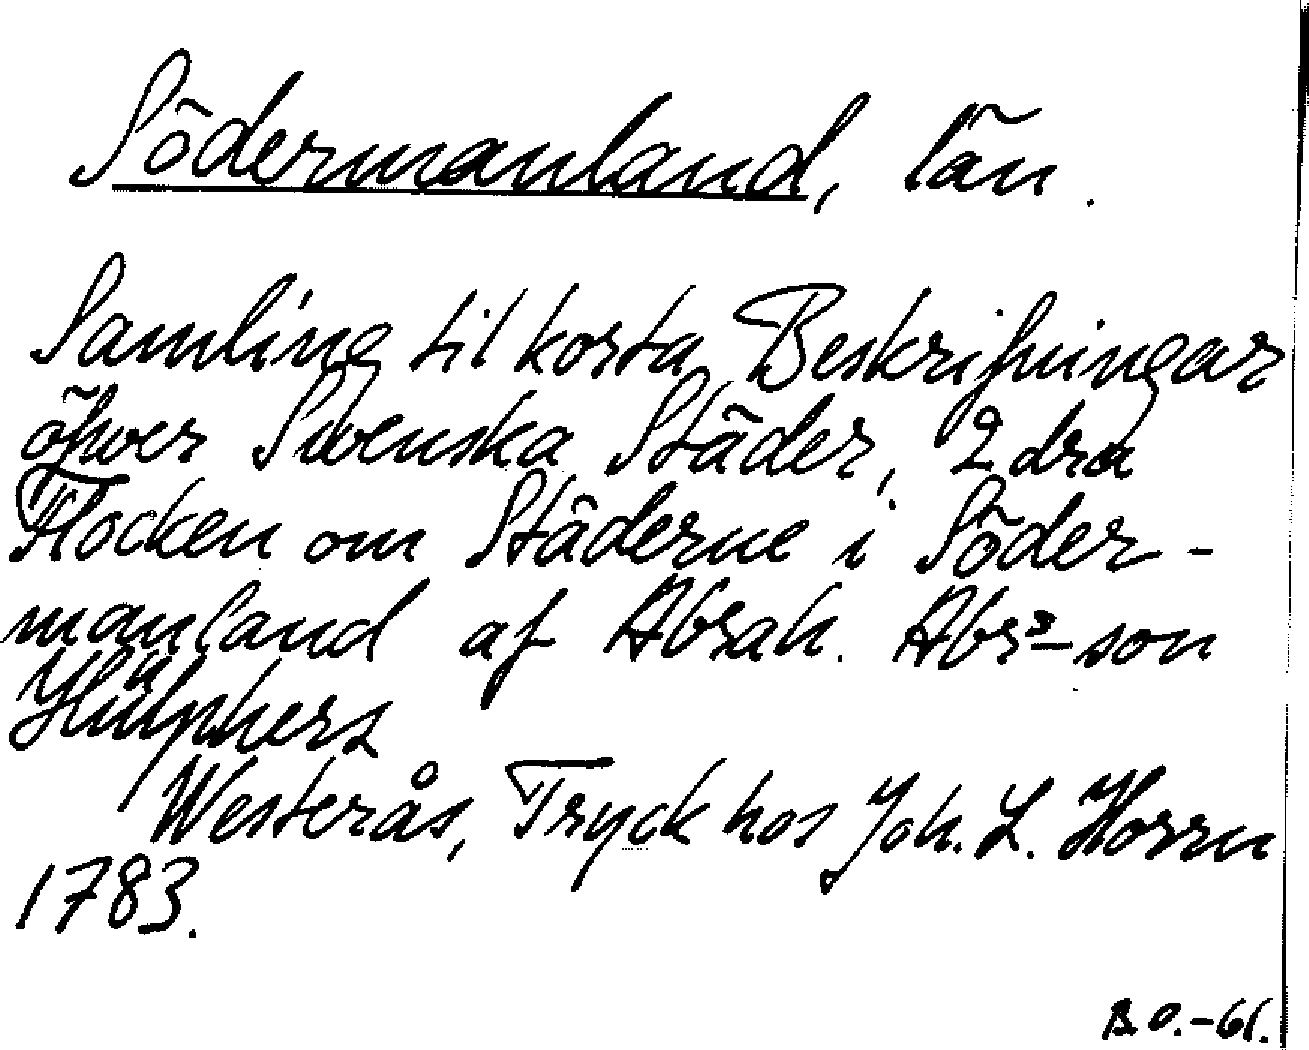 Södermanland, län.
Samling til korta Beskrifningar
öfwer Swenska Städer, 2 dra
Flocken om Städerne i Söder-
manland af Abrah. Abrs-son
Hülphers
Westerås, Tryck hos Joh. L. Horrn
1783.
B.O.-61.